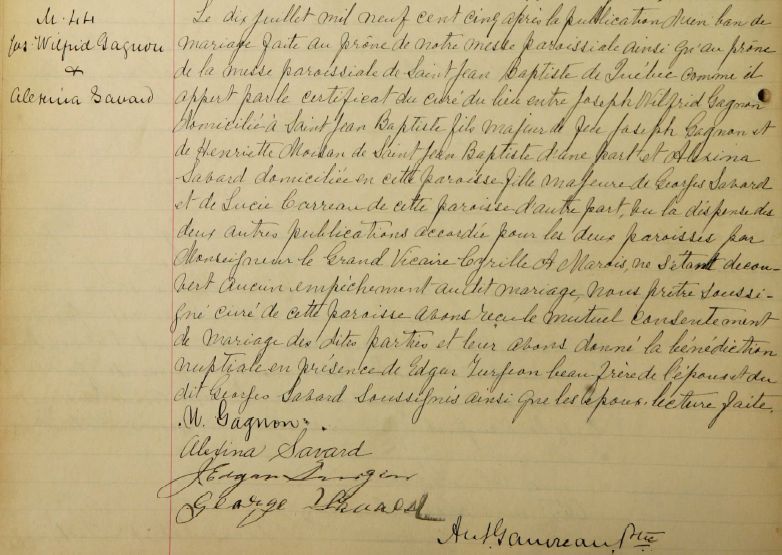 M. 44
Jos. Wilfrid Gagnon
&
Alexina Savard
Le dix juillet mil neuf cent cinq après la publication d'un ban de
mariage faite au prône de notre messe paroissiale ainsi qu'au prône
de la messe paroissiale de Saint Jean Baptiste de Québec comme il
appert par le certificat du curé du lieu entre Joseph Wilfrid Gagnon
domicilié à Saint Jean Baptiste fils majeur de feu Joseph Gagnon et
de Henriette Moisan de Saint Jean Baptiste d'une part et Alexina
Savard domiciliée en cette paroisse fille majeure de Georges Savard
et de Lucie Carreau de cette paroisse d'autre part, vu la dispense des
deux autres publications accordée pour les deux paroisses par
Monseigneur le Grand Vicaire Cyrille A Marois, ne s'étant décou-
vert aucun empêchement au dit mariage, nous prêtre soussi-
gné curé de cette paroisse avons reçu le mutuel consentement
de mariage des dites parties et leur avons donné la bénédiction
nuptiale en présence de Edgar Turgeon beau frère de l'époux et du
dit Georges Savard soussignés ainsi que les époux. lecture faite.
W. Gagnon.
Alexina Savard
J Edgar Turgeon
George Savard
Ant. Gauvreau, Ptre